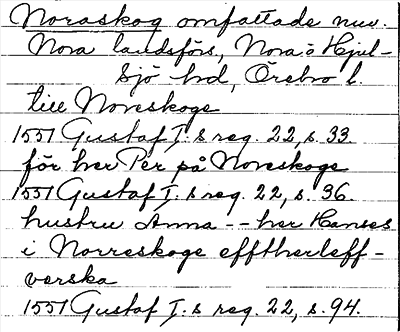 Noraskog omfattade nuv.
Nora landsförs, Nora o Hjul-
sjö hrd, Örebro l.
till Noreskoge
1551 Gustaf I:s reg. 22, s. 33.
för her Per på Noreskoge
1551 Gustaf I:s reg. 22, s. 36.
hustru Anna -- her Hanses
i Norreskoge efftherleff-
verska
1551 Gustaf I:s reg. 22, s. 94.